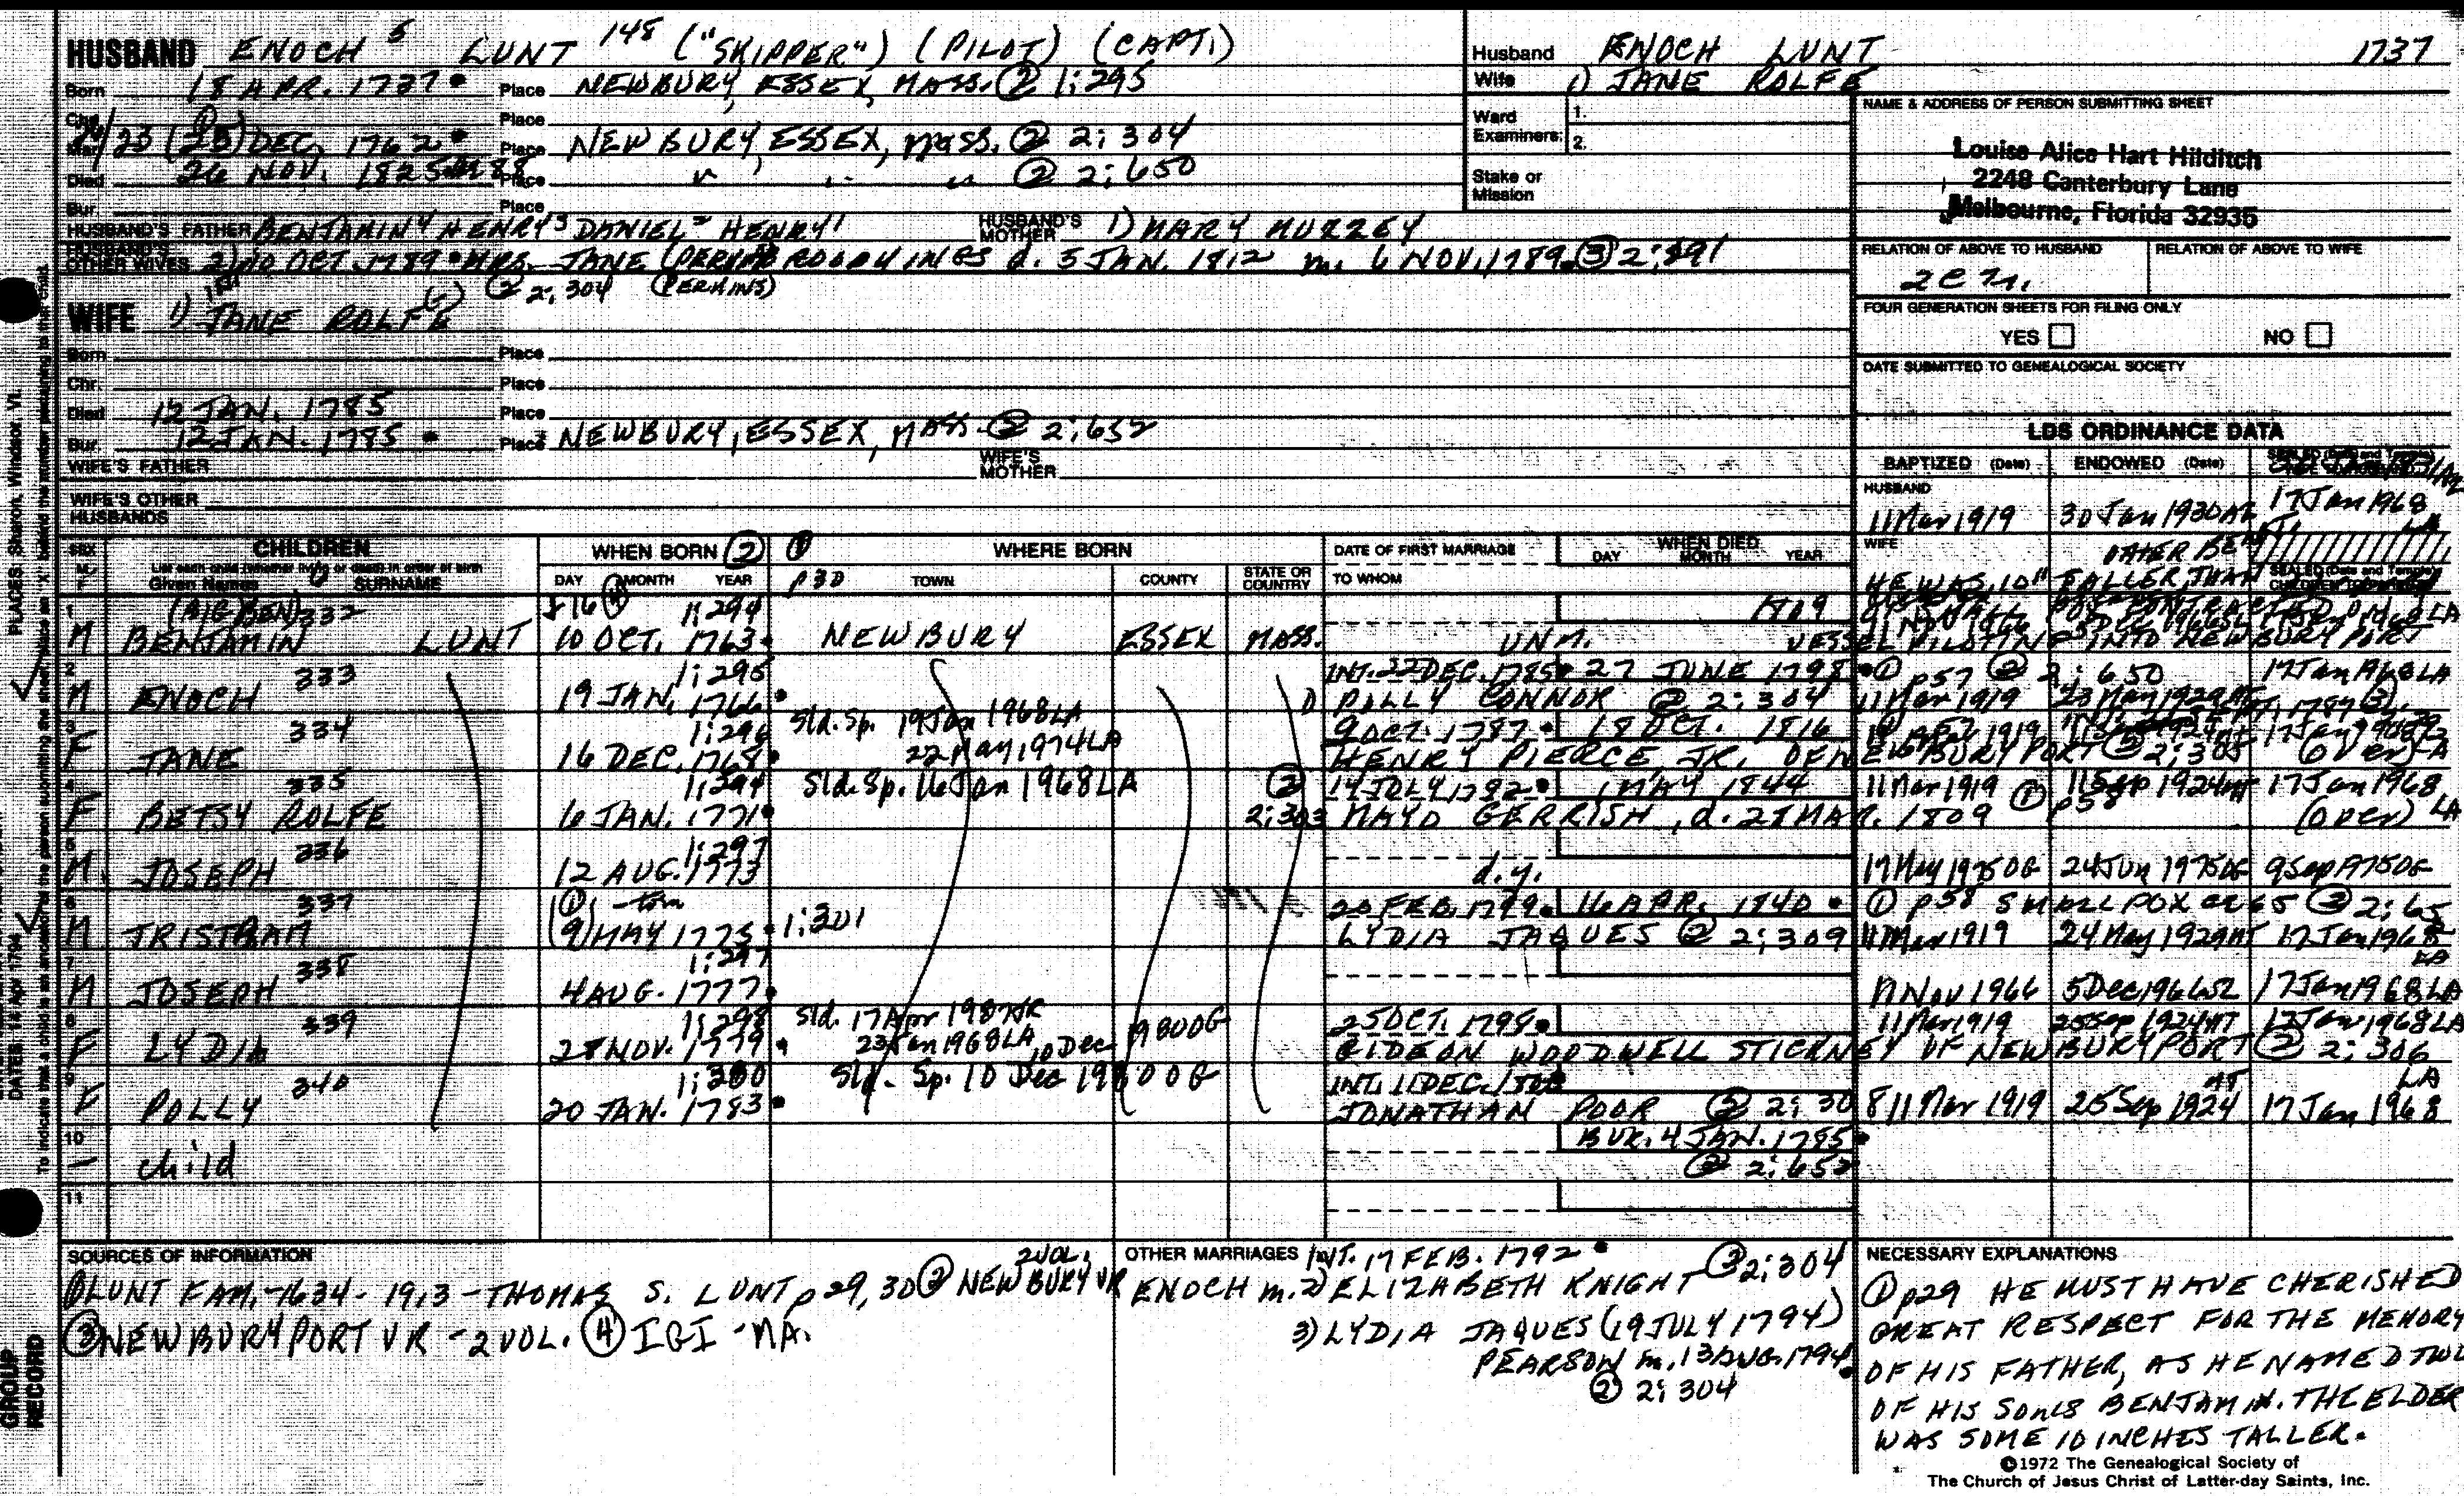 HUSBAND ENOCH 5 LUNT 148 ("SKIPPER") (PILOT) (CAPT.)
Born 18 APR. 1737 Place NEWBURY, ESSEX, MASS. ② 1:295
Chr. Place
23 (25) DEC. 1762 Place NEWBURY, ESSEX, MASS. ② 2:304
Died 26 NOV. 1825 Place " " " ② 2:650
Bur. Place
HUSBAND'S FATHER BENJAMIN 4 HENRY 3 DANIEL 2 HENRY 1 HUSBAND'S MOTHER 1) MARY MUZZEY
HUSBAND'S OTHER WIVES 2) 10 OCT. 1789 MRS. JANE d. 5 JAN. 1812 m. 6 NOV. 1789 ③
② 2:304 (PERKINS)
WIFE 1) JANE ROLFE
Born Place
Chr. Place
Died 12 JAN. 1785 Place
Bur. 12 JAN. 1785 Place NEWBURY, ESSEX, MASS. ② 2:652
WIFE'S FATHER WIFE'S MOTHER
WIFE'S OTHER HUSBANDS
Husband ENOCH LUNT 1737
Wife 1) JANE ROLFE
Ward Examiners: 1.
2.
Stake or Mission
NAME & ADDRESS OF PERSON SUBMITTING SHEET
Louise Alice Hart Hilditch
2248 Canterbury Lane
Melbourne, Florida 32935
RELATION OF ABOVE TO HUSBAND RELATION OF ABOVE TO WIFE
FOUR GENERATION SHEETS FOR FILING ONLY
YES NO
DATE SUBMITTED TO GENEALOGICAL SOCIETY
LDS ORDINANCE DATA
BAPTIZED (Date) ENDOWED (Date) SEALED (Date and Temple)
HUSBAND
11 Mar 1919 30 Jan 1930 AZ 17 Jan 1968 LA
WIFE
SEX M F CHILDREN WHEN BORN ② ① WHERE BORN DATE OF FIRST MARRIAGE WHEN DIED
List each child (whether living or dead) in order of birth
Given Names SURNAME DAY MONTH YEAR p30 TOWN COUNTY STATE OR COUNTRY TO WHOM DAY MONTH YEAR
HE WAS 10" TALLER THAN OTHER BEN
1 (BIG BEN) 332 16 ④ 1:294 1809
M BENJAMIN LUNT 10 OCT. 1763 NEWBURY ESSEX MASS. UNM. VESSEL PILOTING INTO NEWBURYPORT
2 333 1:295 INT. 22 DEC. 1785 27 JUNE 1798 ① p57 ② 2:650 17 Jan 1968 LA
M ENOCH 19 JAN. 1766 1) POLLY CONNOR ② 2:304 11 Mar 1919
3 334 1:296 Sld. Sp. 19 Jan 1968 LA 9 OCT. 1787 18 OCT. 1816
F JANE 16 DEC. 1768 22 May 1974 LA HENRY PIERCE, JR. OF NEWBURYPORT ② 2:305 (over) LA
4 335 1:294 Sld. Sp. 16 Jan 1968 LA ② 14 JULY 1782 1 MAY 1844 11 Mar 1919 ① 11 Sep 1924 17 Jan 1968
F BETSY ROLFE 6 JAN. 1771 2:303 MAYO GERRISH, d. 28 MAR. 1809 p58 (over) LA
5 336 1:297
M JOSEPH 12 AUG. 1773 d.y. 17 May 1975 OG 24 Jun 1975 OG 9 Sep 1975 OG
6 337 ① 20 FEB. 1799 16 APR. 1840 ① p58 SMALL POX ② 2:65
M TRISTRAM (9) MAY 1775 1:301 LYDIA JAQUES ② 2:309 11 Mar 1919 24 May 1929 17 Jan 1968 LA
7 338 1:297
M JOSEPH 4 AUG. 1777 11 Nov 1966 5 Dec 1966 SL 17 Jan 1968 LA
8 339 1:298 Sld. 17 Apr 1987 25 OCT. 1798 11 Mar 1919 25 Sep 1924 17 Jan 1968 LA
F LYDIA 28 NOV. 1779 23 Jan 1968 LA 10 Dec 1980 OG GIDEON WOODWELL STICKNEY OF NEWBURYPORT ② 2:306
9 340 1:300 Sld. Sp. 10 Dec 1980 OG INT. 11 DEC. LA
F POLLY 20 JAN. 1783 JONATHAN POOR ② 2:308 11 Mar 1919 25 Sep 1924 17 Jan 1968
10 BUR. 4 JAN. 1785
— child ② 2:652
11
SOURCES OF INFORMATION
① LUNT FAM. - 1634 - 1913 - THOMAS S. LUNT p29, 30 ② NEWBURY VR 2 VOL.
③ NEWBURYPORT VR - 2 VOL. ④ IGI - MA.
OTHER MARRIAGES INT. 17 FEB. 1792
ENOCH m. 2) ELIZABETH KNIGHT ② 2:304
3) LYDIA JAQUES (19 JULY 1794)
PEARSON m. 13 AUG. 1794
② 2:304
NECESSARY EXPLANATIONS
① p29 HE MUST HAVE CHERISHED
GREAT RESPECT FOR THE MEMORY
OF HIS FATHER, AS HE NAMED TWO
OF HIS SONS BENJAMIN. THE ELDER
WAS SOME 10 INCHES TALLER.
©1972 The Genealogical Society of
The Church of Jesus Christ of Latter-day Saints, Inc.
PLACES Sharon, Windsor, Vt.
DATES 14 Apr 1794
To indicate that a child is an ancestor of the person submitting the sheet, place an "X" behind the number pertaining to that child.
GROUP
RECORD